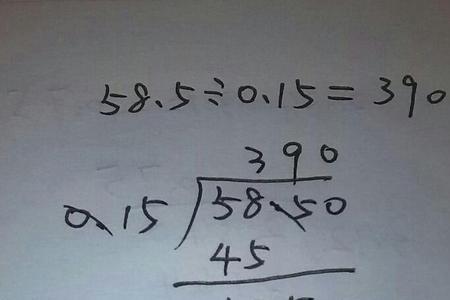 58.5÷0.15=390
390
0.15 58.50
45